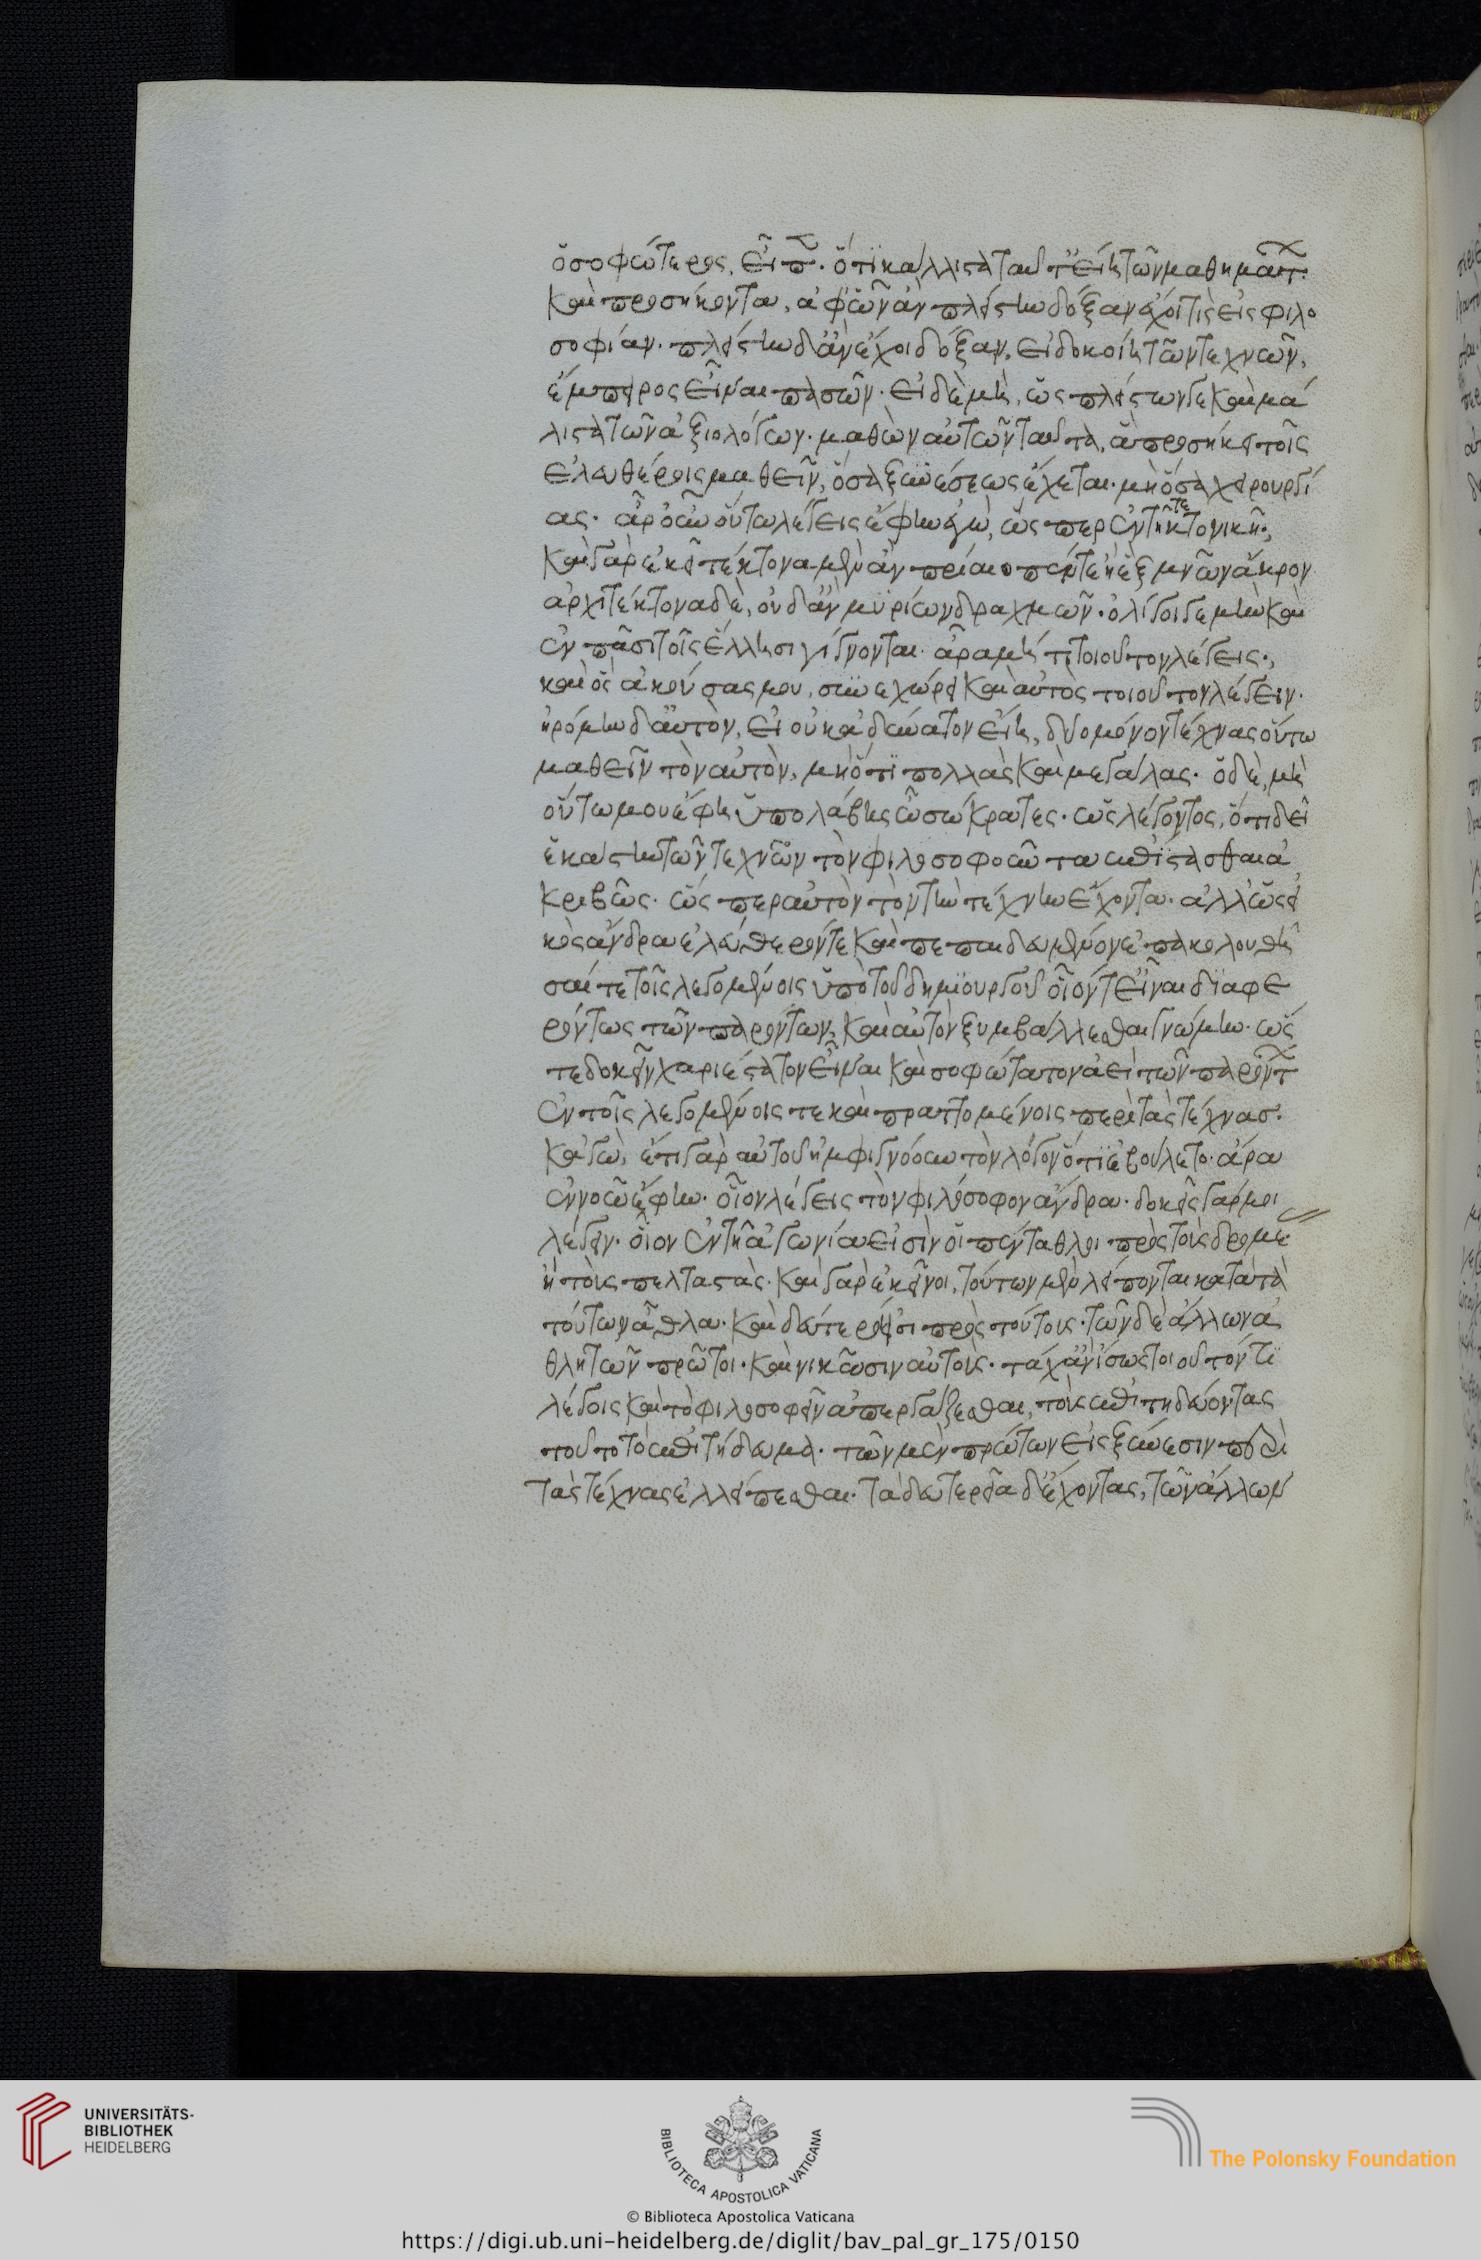 ὁ σοφώτερος, εἶπ. ὅτι κάλλιστα ταῦτ' εἴη τῶν μαθημάτ.
καὶ προσήκοντα, ἀφ' ὧν ἂν πλείστην δόξαν ἔχοι τις εἰς φιλο
σοφίαν. πλείστην δ' ἂν ἔχοι δόξαν, εἰ δοκοίη τῶν τεχνῶν,
ἔμπειρος εἶναι πασῶν. εἰ δὲ μὴ, ὡς πλείστων γε καὶ μά
λιστα τῶν ἀξιολόγων. μαθὼν αὐτῶν ταῦτα, ἃ προσήκει τοῖς
ἐλευθέροις μαθεῖν, ὅσα ξυνέσεως ἔχεται. μὴ ὅσα χειρουργί
ας. ἆρ' οὖν οὕτω λέγεις ἔφην ἐγὼ, ὥσπερ ἐν τῆ τεκτονικῆ;
καὶ γὰρ ἐκεῖ τέκτονα μὲν ἂν πρίαιο πέντε ἢ ἓξ μνῶν ἄκρον
ἀρχιτέκτονα δὲ, οὐδ' ἂν μυρίων δραχμῶν. ὀλίγοι γε μὴν καὶ
ἐν πᾶσι τοῖς ἕλλησι γίγνονται. ἆρα μή τι τοιοῦτον λέγεις;
καὶ ὃς ἀκούσας μου, συνεχώρει καὶ αὐτὸς τοιοῦτον λέγειν.
ἠρόμην δ' αὐτὸν, εἰ οὐκ ἀδύνατον εἴη, δύο μόνον τέχνας οὕτω
μαθεῖν τὸν αὐτὸν, μὴ ὅτι πολλὰς καὶ μεγάλας. ὁ δὲ, μὴ
οὕτω μου ἔφη ὑπολάβης ὦ σώκρατες. ὡς λέγοντος, ὅτι δεῖ
ἑκάστην τῶν τεχνῶν τὸν φιλοσοφοῦντα ἐπίστασθαι ἀ
κριβῶς. ὥσπερ αὐτὸν τὸν τὴν τέχνην ἔχοντα. ἀλλ' ὡς εἰ
κὸς ἄνδρα ἐλεύθερόν τε καὶ πεπαιδευμένον ἐπακολουθῆ
σαί τε τοῖς λεγομένοις ὑπὸ τοῦ δημιουργοῦ οἷόν τ' εἶναι διαφε
ρόντως τῶν παρόντων, καὶ αὐτὸν ξυμβάλλεσθαι γνώμην. ὥς
τε δοκεῖν χαριέστατον εἶναι καὶ σοφώτατον ἀεὶ τῶν παρόντ
ἐν τοῖς λεγομένοις τε καὶ πραττομένοις περὶ τὰς τέχνας.
κἀγὼ, ἔτι γὰρ αὐτοῦ ἠμφιγνόουν τὸν λόγον ὅτι ἐβούλετο. ἆρα
ἐννοῶ ἔφην. οἷον λέγεις τὸν φιλόσοφον ἄνδρα. δοκεῖς γάρ μοι
λέγειν. οἷον ἐν τῆ ἀγωνία εἰσὶν οἱ πένταθλοι πρὸς τοὺς δρομε
ἢ τοὺς πελταστάς. καὶ γὰρ ἐκεῖνοι, τούτων μὲν λείπονται κατὰ τὰ
τούτων ἆθλα. καὶ δεύτεροί εἰσι πρὸς τούτους. τῶν δὲ ἄλλων ἀ
θλητῶν πρῶτοι. καὶ νικῶσιν αὐτούς. τάχ' ἂν ἴσως τοιοῦτόν τι
λέγοις καὶ τὸ φιλοσοφεῖν ἀπεργάζεσθαι, τοὺς ἐπιτηδεύοντας
τοῦτο τὸ ἐπιτήδευμα. τῶν μὲν πρώτων εἰς ξύνεσιν περὶ
τὰς τέχνας ἐλλείπεσθαι. τὰ δευτερεῖα δ' ἔχοντας, τῶν ἄλλων
UNIVERSITÄTS-
BIBLIOTHEK
HEIDELBERG
BIBLIOTECA APOSTOLICA VATICANA
The Polonsky Foundation
© Biblioteca Apostolica Vaticana
https://digi.ub.uni-heidelberg.de/diglit/bav_pal_gr_175/0150